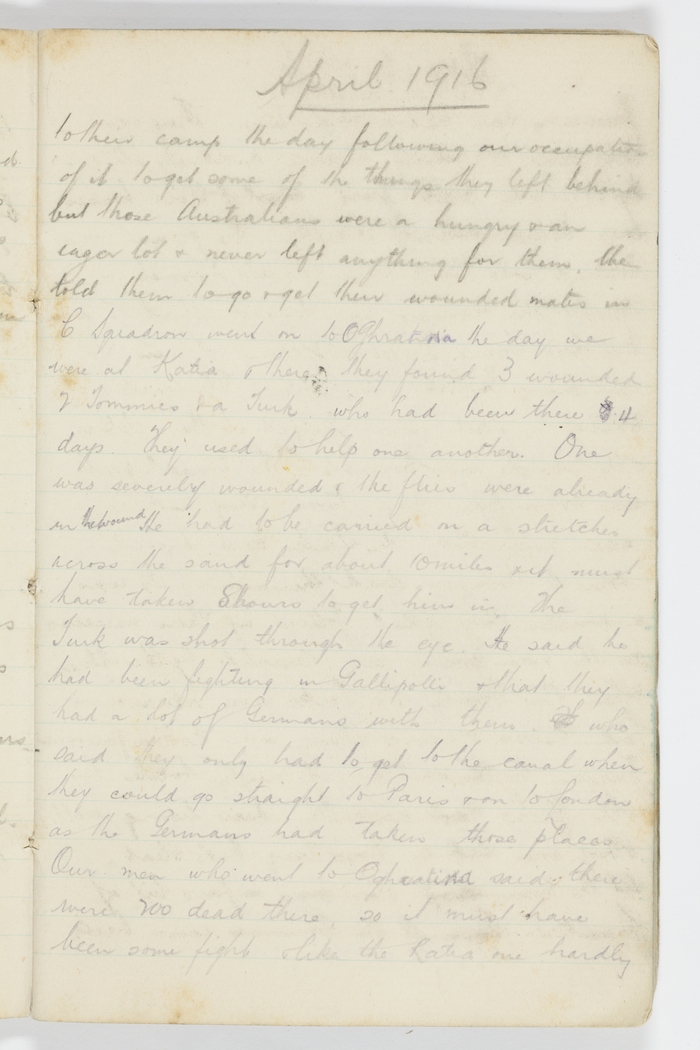 April 1916
to their camp the day following our occupation
of it to get some of the things they left behind
but those Australians were a hungry & an
eager lot & never left anything for them, the
told them to go & get their wounded mates in
C Squadron went on to Oghratina the day we
were at Katia & there they found 3 wounded
2 Tommies & a Turk who had been there 4
days. They used to help one another. One
was severely wounded & the flies were already
in the wound. He had to be carried on a stretcher
across the sand for about 10 miles & it must
have taken 8 hours to get him in. The
Turk was shot through the eye. He said he
had been fighting in Gallipolli & that they
had a lot of Germans with them. who
said they only had to get to the canal when
they could go straight to Paris & on to London
as the Germans had taken those places.
Our men who went to Oghratina said there
were 200 dead there, so it must have
been some fight & like the Katia one hardly